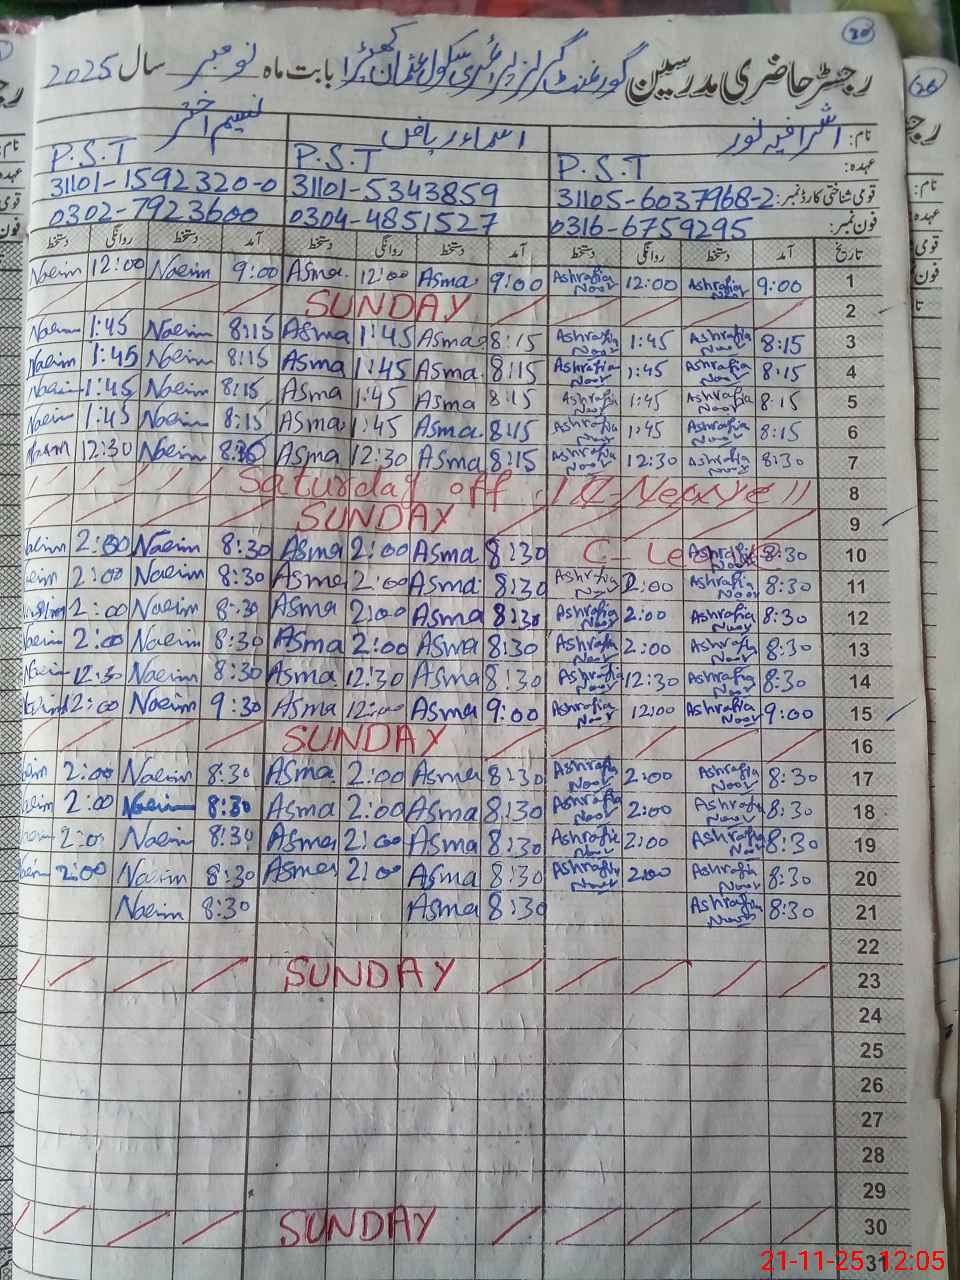 30
رجسٹر حاضری مدرسین گورنمنٹ گرلز پرائمری سکول عثمان کھیڑا بابت ماہ نومبر سال 2025
نام: اشرافیہ نور اسماء ریاض نسیم اختر
عہدہ: P.S.T P.S.T P.S.T
قومی شناختی کارڈ نمبر: 31105-6037968-2 31101-5343859 31101-1592320-0
فون نمبر: 0316-6759295 0304-4851527 0302-7923600
تاریخ آمد دستخط روانگی دستخط آمد دستخط روانگی دستخط آمد دستخط روانگی دستخط
Naeim 12:00 Naeim 9:00 Asma 12:00 Asma 9:00 Ashrafia Noor 12:00 Ashrafia Noor 9:00 1
SUNDAY 2
Naeim 1:45 Naeim 8:15 Asma 1:45 Asma 8:15 Ashrafia Noor 1:45 Ashrafia Noor 8:15 3
Naeim 1:45 Naeim 8:15 Asma 1:45 Asma 8:15 Ashrafia Noor 1:45 Ashrafia Noor 8:15 4
Naeim 1:45 Naeim 8:15 Asma 1:45 Asma 8:15 Ashrafia Noor 1:45 Ashrafia Noor 8:15 5
Naeim 1:45 Naeim 8:15 Asma 1:45 Asma 8:15 Ashrafia Noor 1:45 Ashrafia Noor 8:15 6
12:30 Naeim Asma 12:30 Asma 8:15 Ashrafia Noor 12:30 Ashrafia Noor 8:30 7
Saturday off 8
SUNDAY 9
Naeim 2:00 Naeim 8:30 Asma 2:00 Asma 8:30 C-Leave Ashrafia Noor 8:30 10
Naeim 2:00 Naeim 8:30 Asma 2:00 Asma 8:30 Ashrafia Noor 2:00 Ashrafia Noor 8:30 11
2:00 Naeim 8:30 Asma 2:00 Asma 8:30 Ashrafia Noor 2:00 Ashrafia Noor 8:30 12
Naeim 2:00 Naeim 8:30 Asma 2:00 Asma 8:30 Ashrafia Noor 2:00 Ashrafia Noor 8:30 13
Naeim 12:30 Naeim 8:30 Asma 12:30 Asma 8:30 Ashrafia Noor 12:30 Ashrafia Noor 8:30 14
Naeim 12:00 Naeim 9:30 Asma 12:00 Asma 9:00 Ashrafia Noor 12:00 Ashrafia Noor 9:00 15
SUNDAY 16
Naeim 2:00 Naeim 8:30 Asma 2:00 Asma 8:30 Ashrafia Noor 2:00 Ashrafia Noor 8:30 17
Naeim 2:00 Naeim 8:30 Asma 2:00 Asma 8:30 Ashrafia Noor 2:00 Ashrafia Noor 8:30 18
Naeim 2:0 Naeim 8:30 Asma 2:00 Asma 8:30 Ashrafia Noor 2:00 Ashrafia Noor 8:30 19
Naeim 2:00 Naeim 8:30 Asma 2:00 Asma 8:30 Ashrafia Noor 2:00 Ashrafia Noor 8:30 20
Naeim 8:30 Asma 8:30 Ashrafia Noor 8:30 21
22
SUNDAY 23
24
25
26
27
28
29
SUNDAY 30
31
21-11-25 12:05
26
نام:
عہدہ
قومی
فون